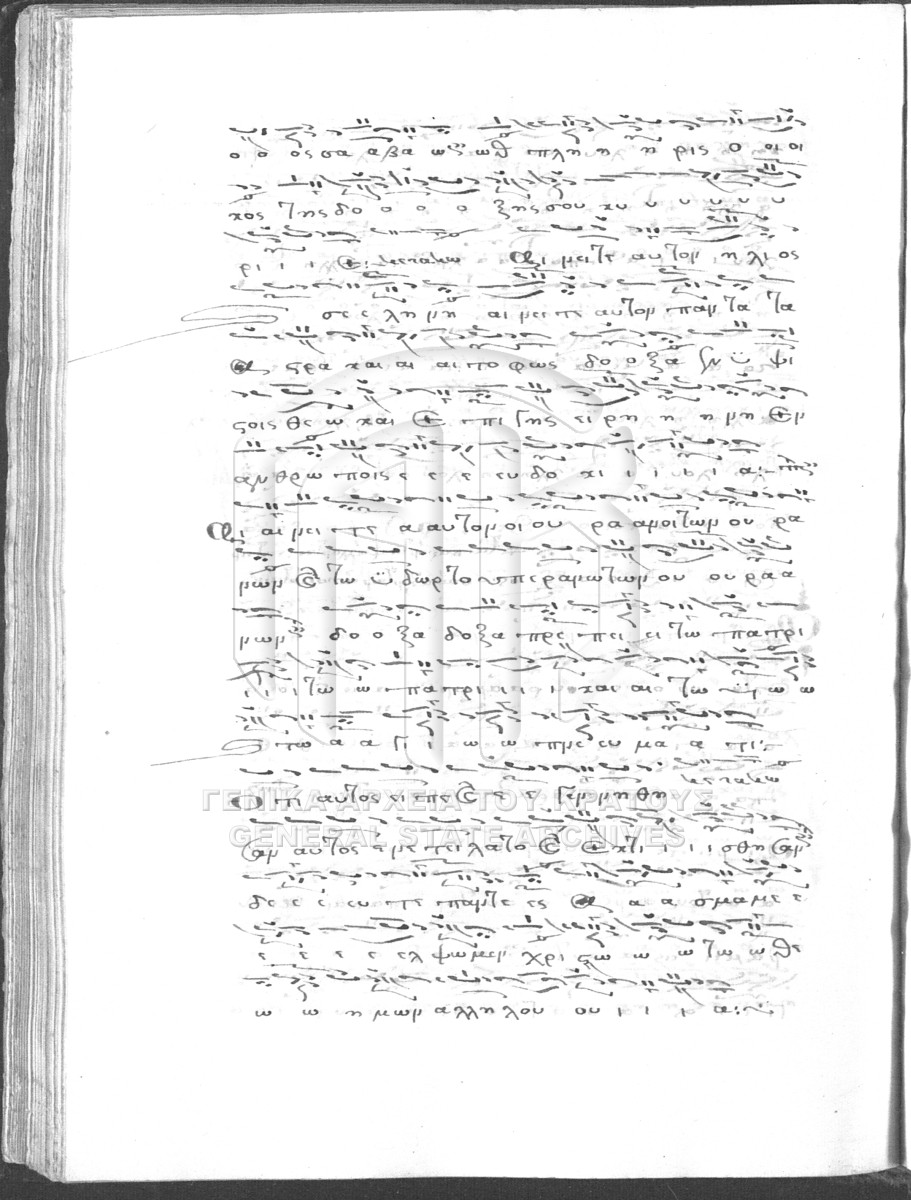 ο ο ος σα αβα ωθ πλη η η ρις ο οι οι
κος της δο ο ο ο ξης σου κυ υ υ υ υ υ
ρι ι ι ε: κεκραγω Αι νειτε αυτον η λι ος
σε ε λη νη αι νειτε αυτον παντα τα
α στρα και αι αι το φως δο ο ξα εν υ ψι
στοις θε ω και ε επι γης ει ρη η η νη εν
αν θρω ποις ε ε ε ευ δο κι ι ι ι ι α:
Αι αι νει τε α αυτον οι ου ρα ανοι των ου ρα
νων και το υ δωρ το υπερανω των ου ουρα α
νων δο ο ξα δοξα πρε πει ει τω πα τρι
ι ι ι τω ω πατρι ι ι ι ι και αι ο τω υι ω ω
τω α α γι ι ω ω πνε ευ μα α τι:
Ο τι αυτος ει πε ε ε ε γεν νη θη
σαν αυτος ε νε τει λατο ε ε κτι ι ι ι σθη σαν
δε ε ε ευ τε παντε ες α α α σμα με ε
ε ε ε ε ελ ψωμεν χρι στω ω ω τω ω θε
ω ω η μων αλλη λου ου ι ι ι α:
ΓΕΝΙΚΑ ΑΡΧΕΙΑ ΤΟΥ ΚΡΑΤΟΥΣ
GENERAL STATE ARCHIVES